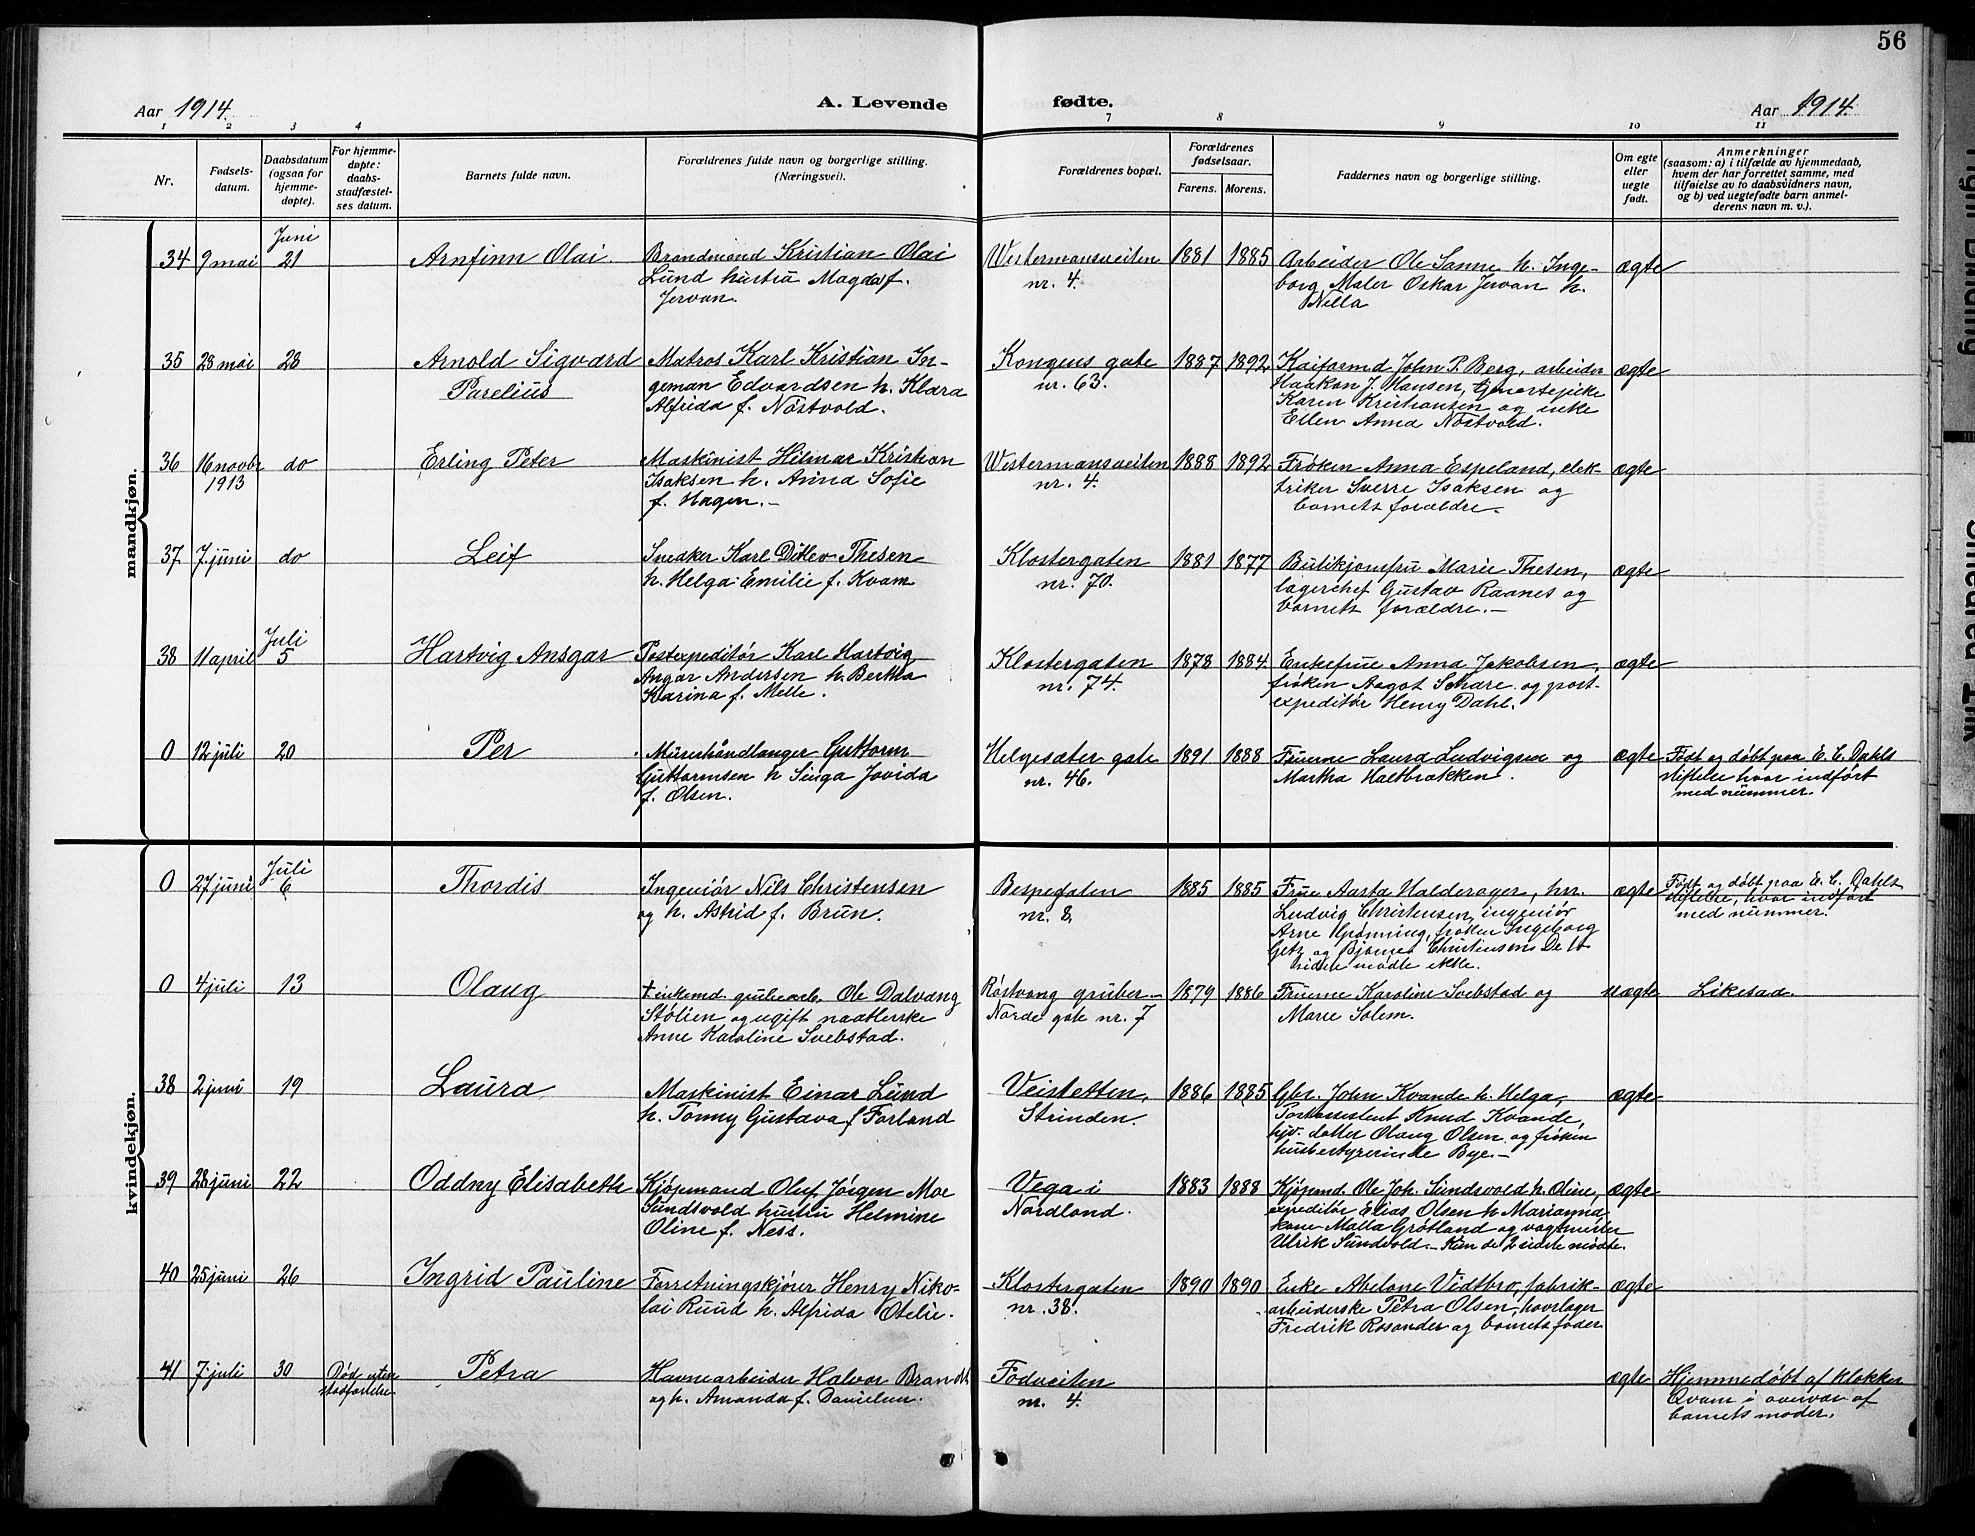 56
Aar 1914.
A. Levende
fødte.
Aar 1914.
1 2 3 4 7 8 9 10 11
Nr.
Fødsels-
datum.
Daabsdatum
(ogsaa for
hjemme-
døpte).
For hjemme-
døpte:
daabs-
stadfæstel-
ses datum.
Barnets fulde navn.
Forældrenes fulde navn og borgerlige stilling.
(Næringsvei).
Forældrenes bopæl.
Forældrenes
fødselsaar.
Farens. Morens.
Faddernes navn og borgerlige stilling.
Om egte
eller
uegte
født.
Anmerkninger
(saasom: a) i tilfælde av hjemmedaab,
hvem der har forrettet samme, med
tilføielse av to daabsvidners navn,
og b) ved uegtefødte barn anmel-
derens navn m. v.).
mandkjøn.
34 9 mai Juni 21
Arnfinn Olai
Brandmand Kristian Olai
Lund hustru Magda f.
Jervan.
Westermansveiten
nr. 4.
1881 1885
Arbeider Ole Sanne h. Inge-
borg, Maler Oskar Jervan h.
Nella
ægte
35 28 mai 28
Arnold Sigvard
Parelius
Matros Karl Kristian In-
geman Edvardsen h. Klara
Alfrida f. Nöstvold.
Kongens gate
nr. 63.
1887 1892
Kaiformd John P. Berg, arbeider
Haakon J. Hansen, tjenestepike
Karen Kristiansen og enke
Ellen Anna Nöstvold.
ægte
36 16 novbr 1913 do
Erling Peter
Maskinist Hilmar Kristian
Isaksen h. Anna Sofie
f. Hagen.-
Westermansveiten
nr. 4.
1888 1892
Frøken Anna Espeland, elek-
triker Sverre Isaksen og
barnets forældre.
ægte
37 7 juni do
Leif
Snedker Karl Ditlev Thesen
h. Helga Emilie f. Kvam
Klostergaten
nr. 70.
1881 1877
Butikjomfru Marie Thesen,
lagerchef Gustav Raanes og
barnets forældre.-
ægte
38 11 april Juli 5
Hartvig Ansgar
Postexpeditör Karl Hartvig
Ansgar Andersen h. Bertha
Karina f. Melle.
Klostergaten
nr. 74.
1878 1884
Enkefrue Anna Jakobsen,
frøken Aagot Schare og post-
expeditör Henry Dahl.
ægte
0 12 juli 20
Per
Murerhåndlanger Guttorm
Guttormsen h Singa Jovida
f. Olsen.
Helgesæter gate
nr. 46.
1891 1888
Fruerne Laura Ludvigsen og
Martha Haltbrækken.
ægte
Født og døbt paa E. C. Dahls
stiftelse hvor indført
med nummer.
kvindekjøn.
0 27 juni Juli 6
Thordis
Ingeniör Nils Christensen
og h. Astrid f. Brun.
Bispegaten
nr. 8.
1885 1885
Frue Aasta Halderager, hrr.
Ludvig Christensen, ingeniör
Arne Grønning, frøken Ingeborg
Getz og Bjarne Christensen. De to
sidste mødte ikke.
ægte
Født og døbt paa E. C. Dahls
stiftelse, hvor indført
med nummer.
0 4 juli 13
Olaug
Enkemd. grubearb. Ole Dalvang
Stölien og ugift naatlerske
Anne Karoline Svebstad.
Röstvang gruber -
Nordre gate nr. 7
1879 1886
Fruerne Karoline Svebstad og
Marie Solem.
uægte
Likesaa.
38 2 juni 19
Laura
Maskinist Einar Lund
h. Tonny Gustava f Forland
Veisletten,
Strinden.
1886 1885
Gbr. John Kvande h. Helga,
Postassistent Knud Kvande,
hjv. datter Olaug Olsen og frøken
husbestyrerinde Bye.-
ægte
39 28 juni 22
Oddny Elisabeth
Kjøpmand Oluf Jörgen Moe
Sundsvold hustru Helmine
Oline f. Ness.
Vega i
Nordland.
1883 1888
Kjøpmd. Ole Joh. Sundsvold h. Oline,
expeditör Elias Olsen h Marianna
kone Malla Grötland og vagtmester
Ulrik Sundsvold.- Kun de 2 sidste mødte.
ægte
40 25 juni 26
Ingrid Pauline
Forretningskjører Henry Niko-
lai Ruud h. Alfrida Otelie.
Klostergaten
nr. 38.
1890 1890
Enke Abelone Vidtbro, fabrik-
arbeiderske Petra Olsen, hovslager
Fredrik Rosander og barnets fader
ægte
41 7 juli 30
Død uten
stadfestelse
Petra
Havnearbeider Halvor Brandt
og h. Amanda f. Danielsen.
Fodveiten
nr. 4.
ægte
Hjemmedøbt af klokker
Qvam i overvær af
barnets moder.